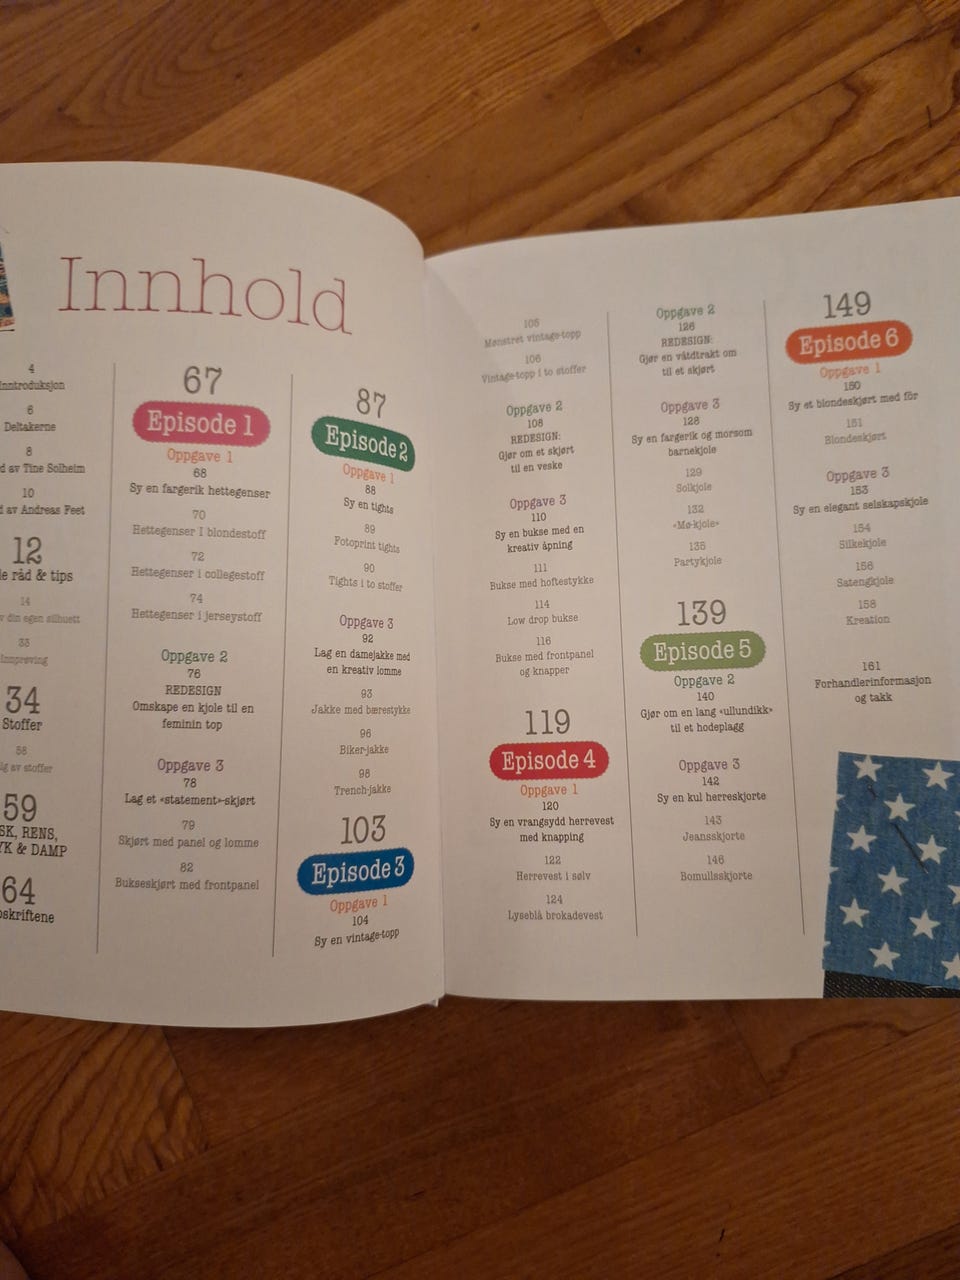 Innhold
4
Inntroduksjon
6
Deltakerne
8
av Tine Solheim
10
av Andreas Feet
12
råd & tips
14
din egen silhuett
33
Innprøving
34
Stoffer
58
av stoffer
59
RENS,
& DAMP
64
67
Episode 1
Oppgave 1
68
Sy en fargerik hettegenser
70
Hettegenser I blondestoff
72
Hettegenser i collegestoff
74
Hettegenser i jerseystoff
Oppgave 2
76
REDESIGN
Omskape en kjole til en
feminin top
Oppgave 3
78
Lag et «statement»-skjørt
79
Skjørt med panel og lomme
82
Bukseskjørt med frontpanel
87
Episode 2
Oppgave 1
88
Sy en tights
89
Fotoprint tights
90
Tights i to stoffer
Oppgave 3
92
Lag en damejakke med
en kreativ lomme
93
Jakke med bærestykke
96
Biker-jakke
98
Trench-jakke
103
Episode 3
Oppgave 1
104
Sy en vintage-topp
105
Mønstret vintage-topp
106
Vintage-topp i to stoffer
Oppgave 2
108
REDESIGN:
Gjør om et skjørt
til en veske
Oppgave 3
110
Sy en bukse med en
kreativ åpning
111
Bukse med hoftestykke
114
Low drop bukse
116
Bukse med frontpanel
og knapper
119
Episode 4
Oppgave 1
120
Sy en vrangsydd herrevest
med knapping
122
Herrevest i sølv
124
Lyseblå brokadevest
Oppgave 2
126
REDESIGN:
Gjør en våtdrakt om
til et skjørt
Oppgave 3
128
Sy en fargerik og morsom
barnekjole
129
Solkjole
132
«Mø-kjole»
135
Partykjole
139
Episode 5
Oppgave 2
140
Gjør om en lang «ullundikk»
til et hodeplagg
Oppgave 3
142
Sy en kul herreskjorte
143
Jeansskjorte
146
Bomullsskjorte
149
Episode 6
Oppgave 1
150
Sy et blondeskjørt med fôr
151
Blondeskjørt
Oppgave 3
153
Sy en elegant selskapskjole
154
Silkekjole
156
Satengkjole
158
Kreation
161
Forhandlerinformasjon
og takk